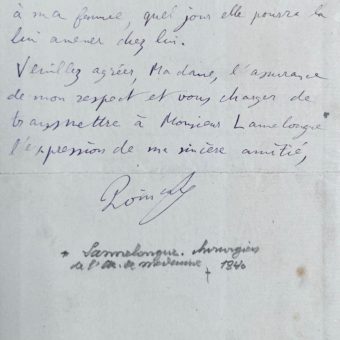 à ma femme, quel jour elle pourra la
lui amener chez lui.
Veuillez agréer, Madame, l'assurance
de mon respect et vous charger de
transmettre à Monsieur Lannelongue
l'expression de ma sincère amitié,
Lannelongue. chirurgien
de l'Ac. de médecine † 1840